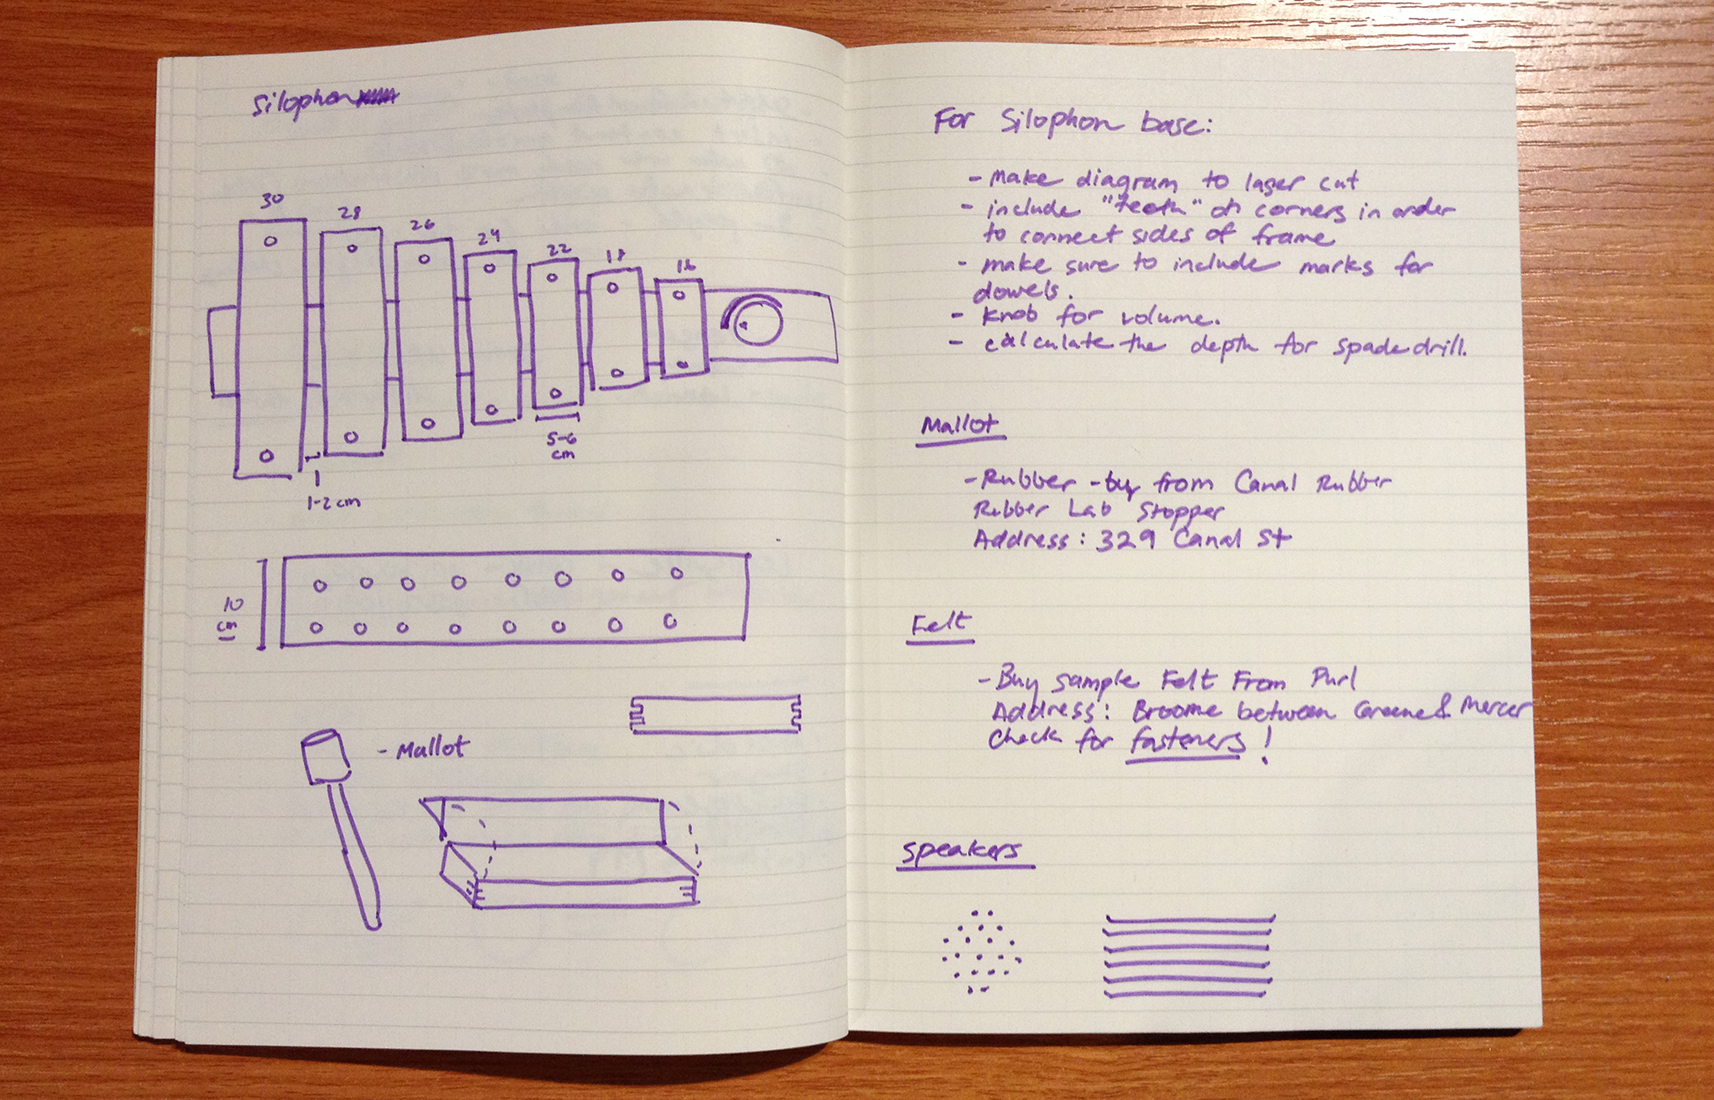 Silophon
30
28
26
24
22
18
16
5-6
cm
1-2 cm
10
cm
- Mallot
For Silophon base:
- make diagram to laser cut
- include "teeth" on corners in order
to connect sides of frame
- make sure to include marks for
dowels.
- knob for volume.
- calculate the depth for spade drill.
Mallot
- Rubber - buy from Canal Rubber
Rubber Lab Stopper
Address: 329 Canal St
Felt
- Buy sample Felt From Purl
Address: Broome between Greene & Mercer
Check for fasteners!
Speakers